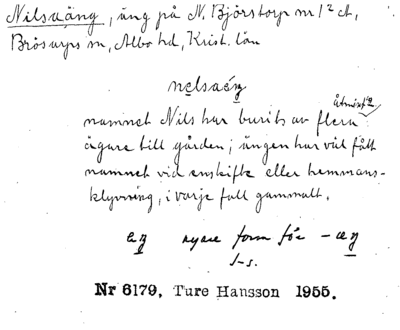 Nilsaäng, äng på N. Björstorp nr 1² A,
Brösarps sn, Albo hd, Krist. län
nelsaéŋ
åtminst. 2
namnet Nils har burits av flera
ägare till gården; ängen har väl fått
namnet vid enskifte eller hemmans-
klyvning, i varje fall gammalt.
eŋ nyare form för -æŋ
J-s.
Nr 6179, Ture Hansson 1955.